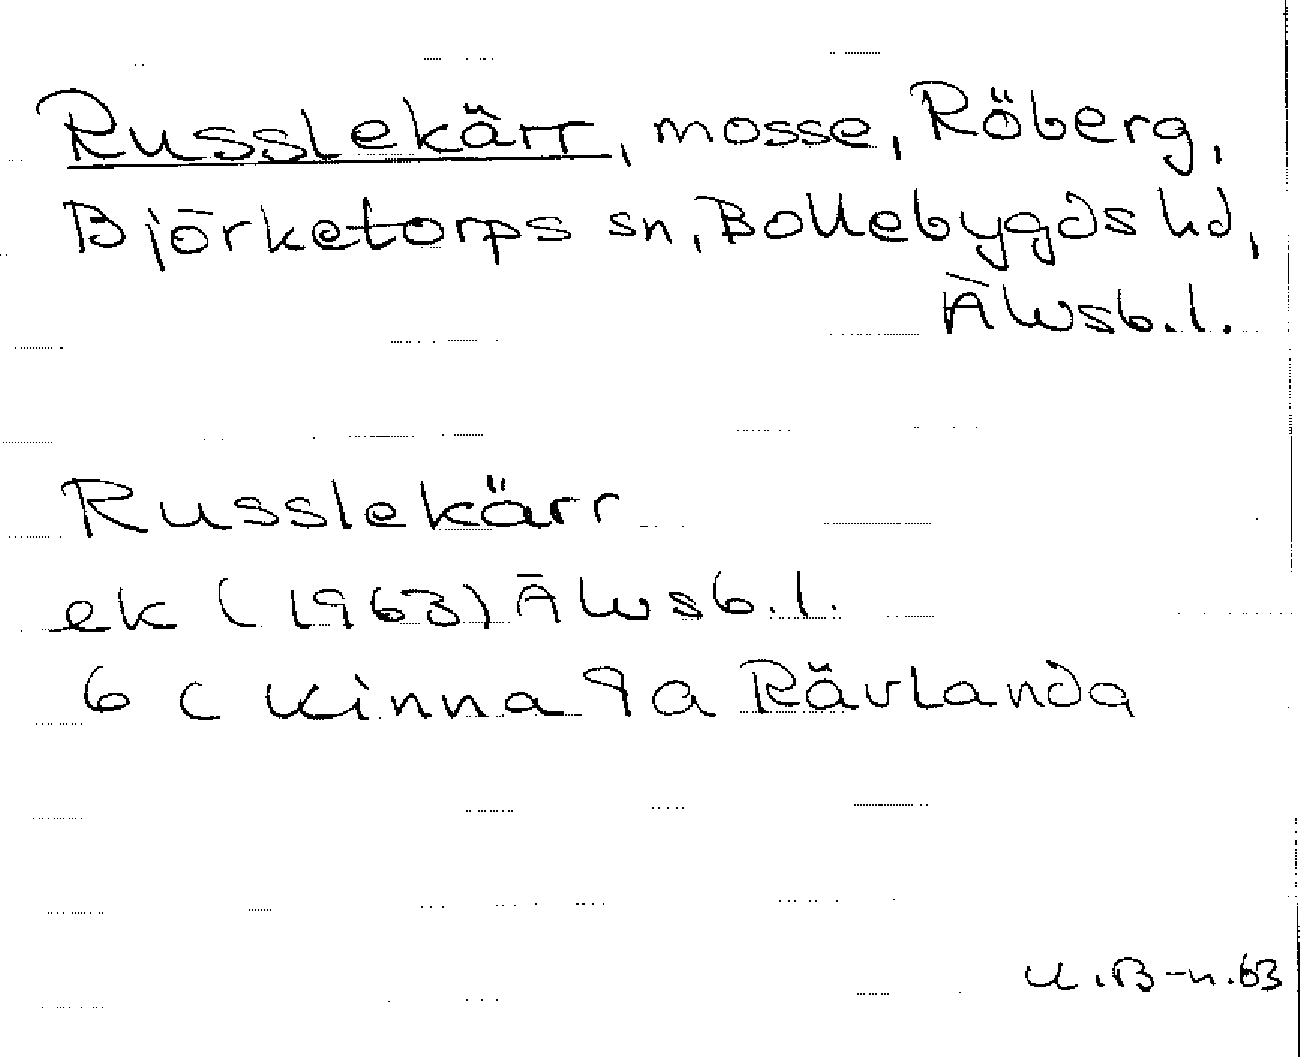 Russlekärr, mosse, Röberg,
Björketorps sn, Bollebygds hd,
Älvsb. l.
Russlekärr
ek (1963) Älvsb. l.
6 c Kinna 9a Rävlanda
U.B-n. 63